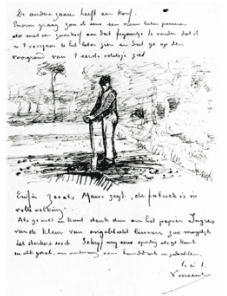 De andere zaaier heeft een korf.
Enorm graag zou ik eens een vrouw laten poseeren
met een zaaikorf om dat figuurtje te vinden dat ik
in 't voorjaar U heb laten zien en dat ge op den
voorgrond van 't eerste schetsje ziet
Enfin zooals Mauve zegt, "de fabriek is in
volle werking".
Als ge wil en kunt denk dan om het papier Ingres
van de kleur van ongebleekt linnen zoo mogelijk
het sterkere soort. Schrijf mij eens spoedig als ge kunt
in elk geval, en ontvang een handdruk in gedachten
t. à t.
Vincent